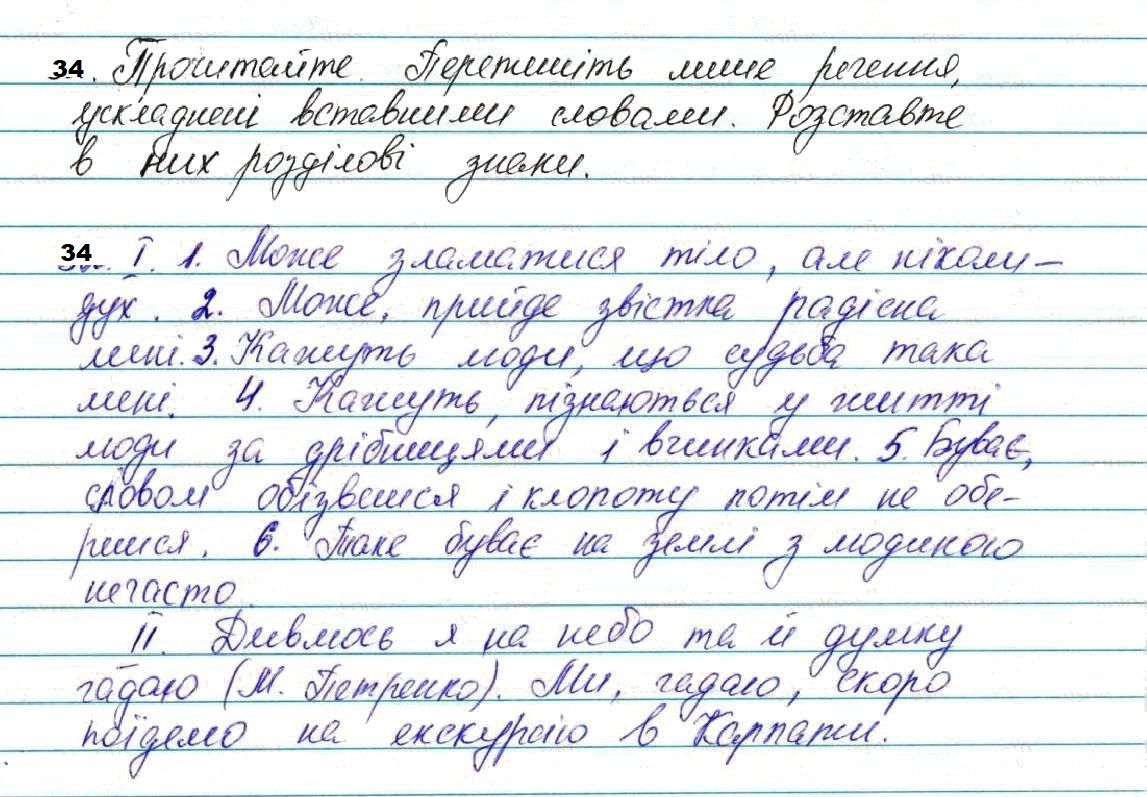 34. Прочитайте. Перепишіть лише речення,
ускладнені вставними словами. Розставте
в них розділові знаки.
34. I. 1. Може зламатися тіло, але ніколи –
дух. 2. Може, прийде звістка радісна
мені. 3. Кажуть люди, що судьба така
мені. 4. Кажуть, пізнаються у житті
люди за дрібницями і вчинками. 5. Буває,
словом обізвешся і клопоту потім не обе-
решся. 6. Таке буває на землі з людиною
нечасто.
II. Дивлюсь я на небо та й думку
гадаю (М. Петренко). Ми, гадаю, скоро
поїдемо на екскурсію в Карпати.